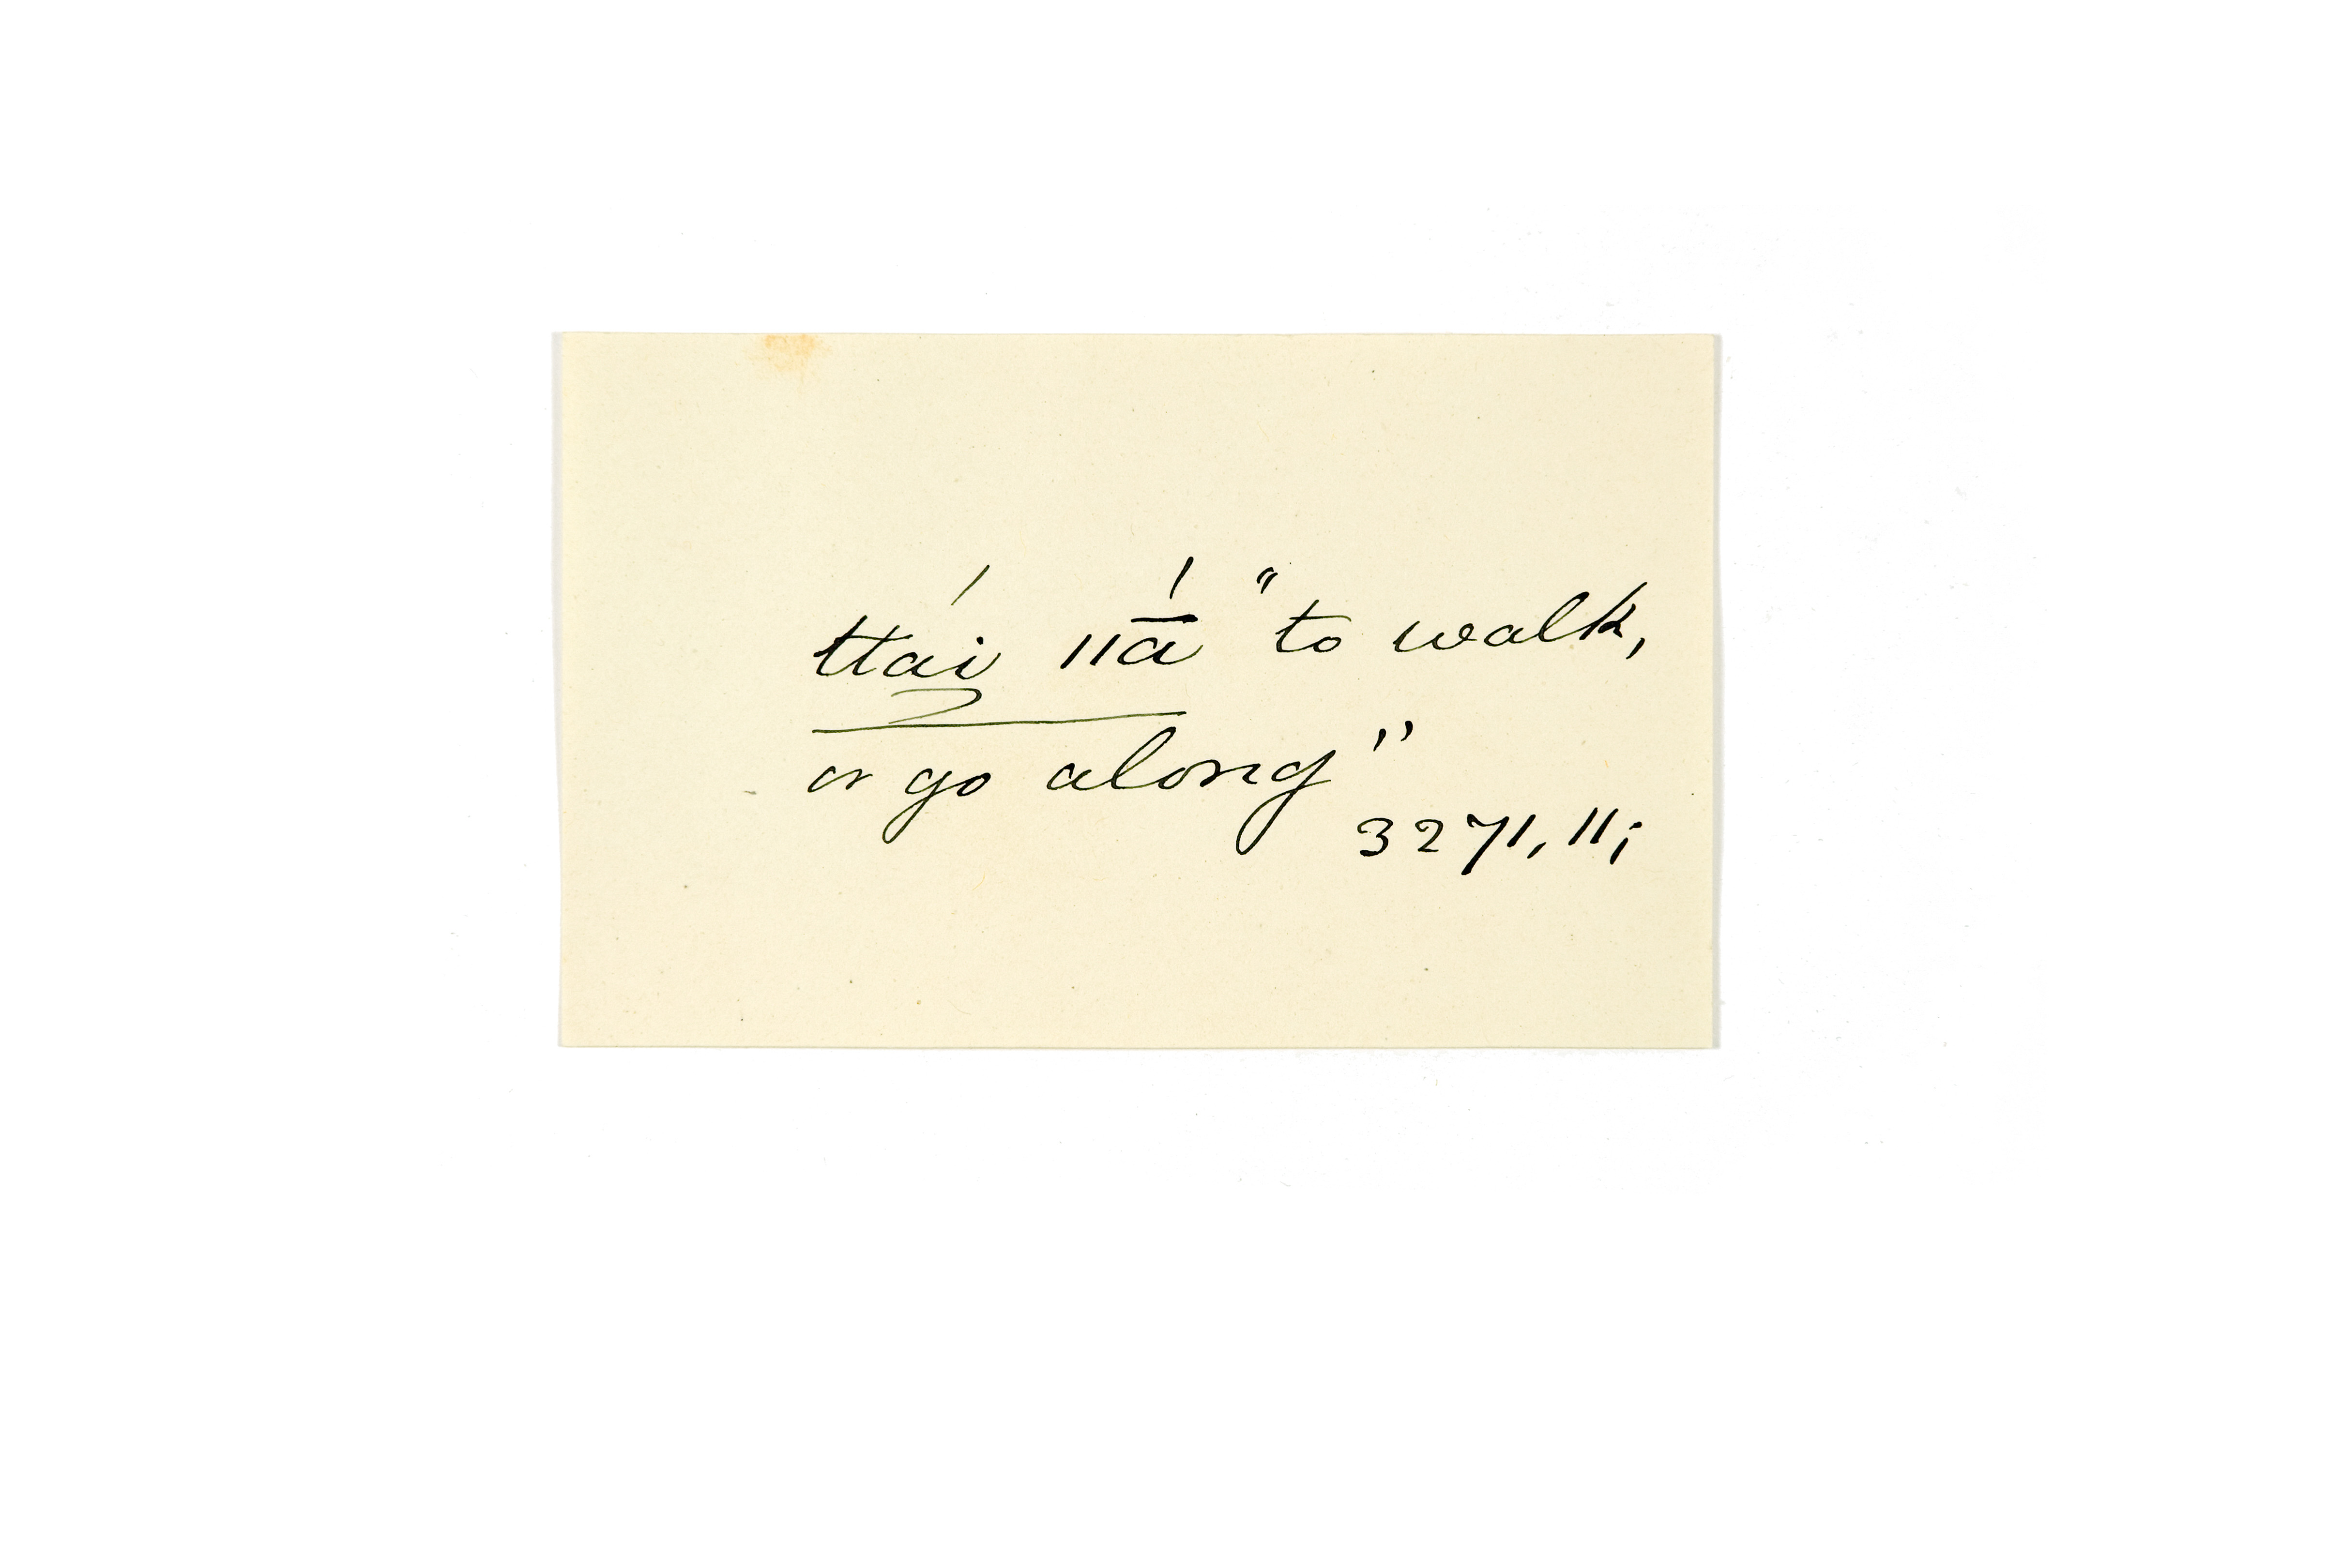 ttái ǁā́ "to walk,
or go along"
3271, 11;